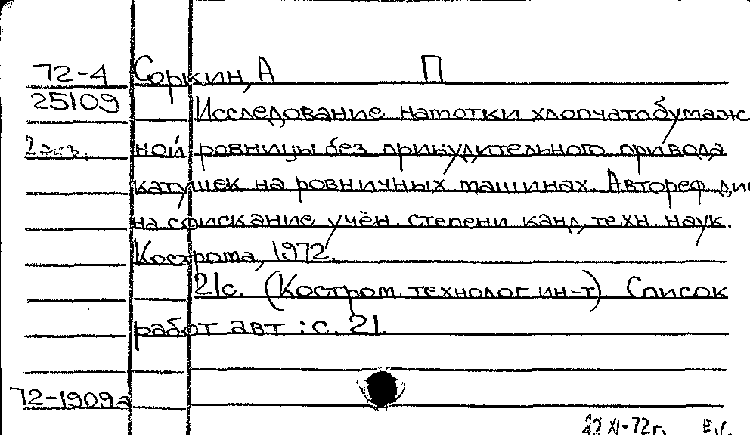 72-4 Соркин, А П
25109 Исследование намотки хлопчатобумаж
2 экз. ной ровницы без принудительного привода
катушек на ровничных машинах. Автореф дис
на соискание учён. степени канд. техн. наук.
Кострома, 1972.
21с. (Костром. технолог ин-т) Список
работ авт : с. 21.
72-1909а
22 XI-72г.